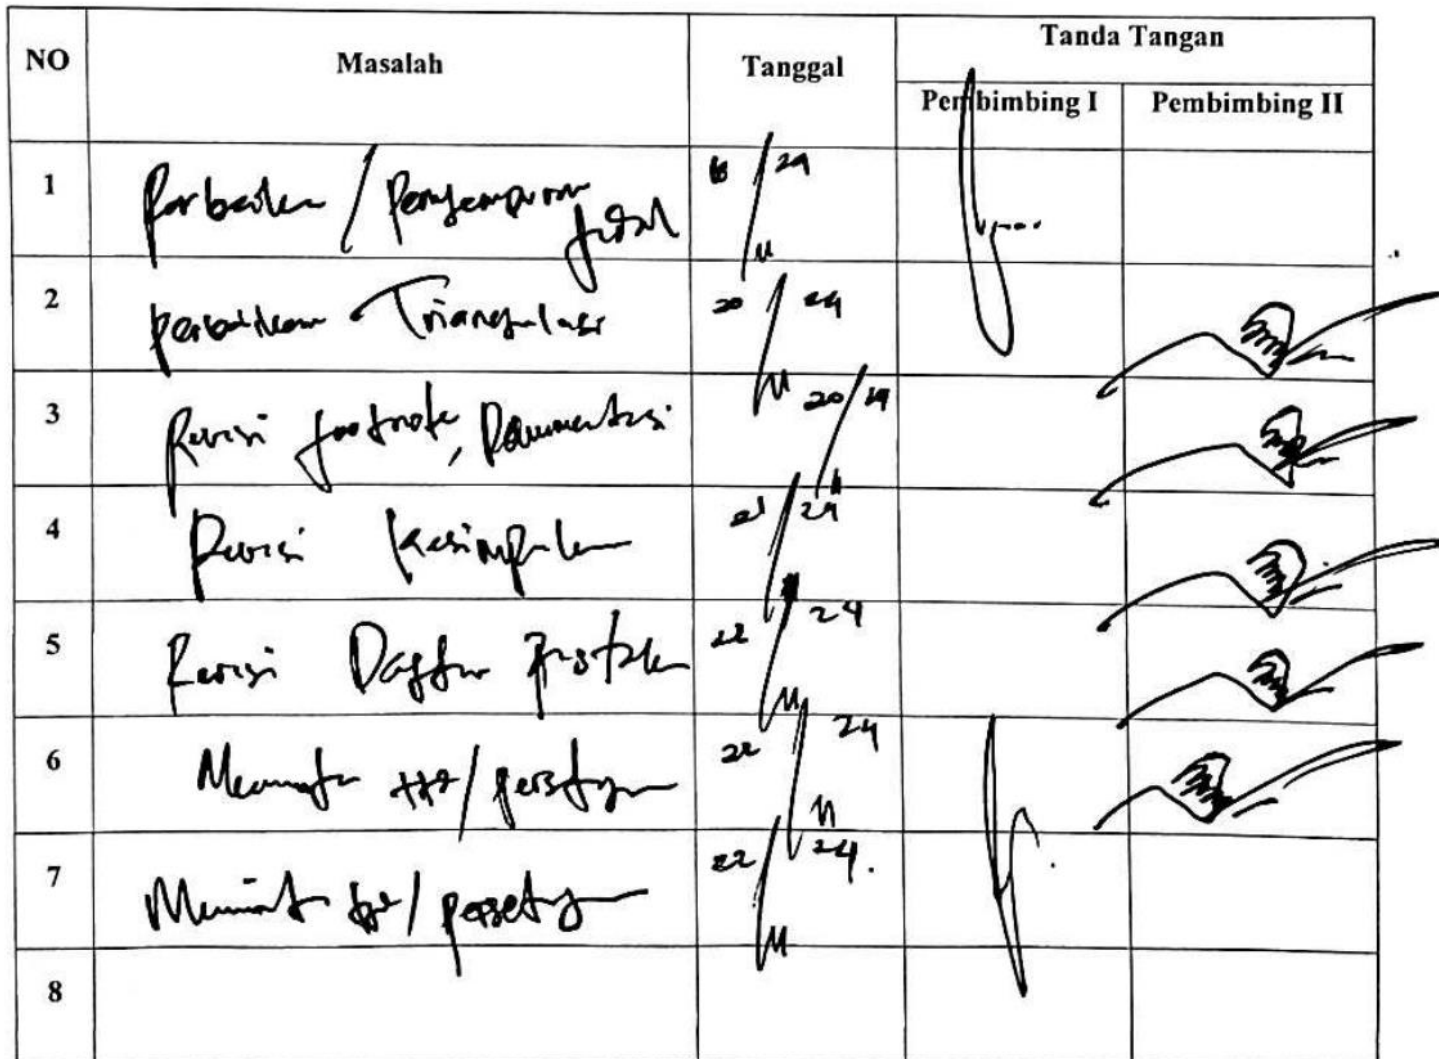 NO Masalah Tanggal Tanda Tangan
Pembimbing I Pembimbing II
1 Perbaikan / Penyempurnaan Judul 18/24 11
2 perbaikan Triangulasi 20/24 11
3 Revisi footnote, Dokumentasi 20/24 11
4 Revisi Kesimpulan 21/24 11
5 Revisi Daftar Pustaka 22/24 11
6 Meminta ttd/persetujuan 22/24 11
7 Meminta ttd/persetujuan 22/24 11
8